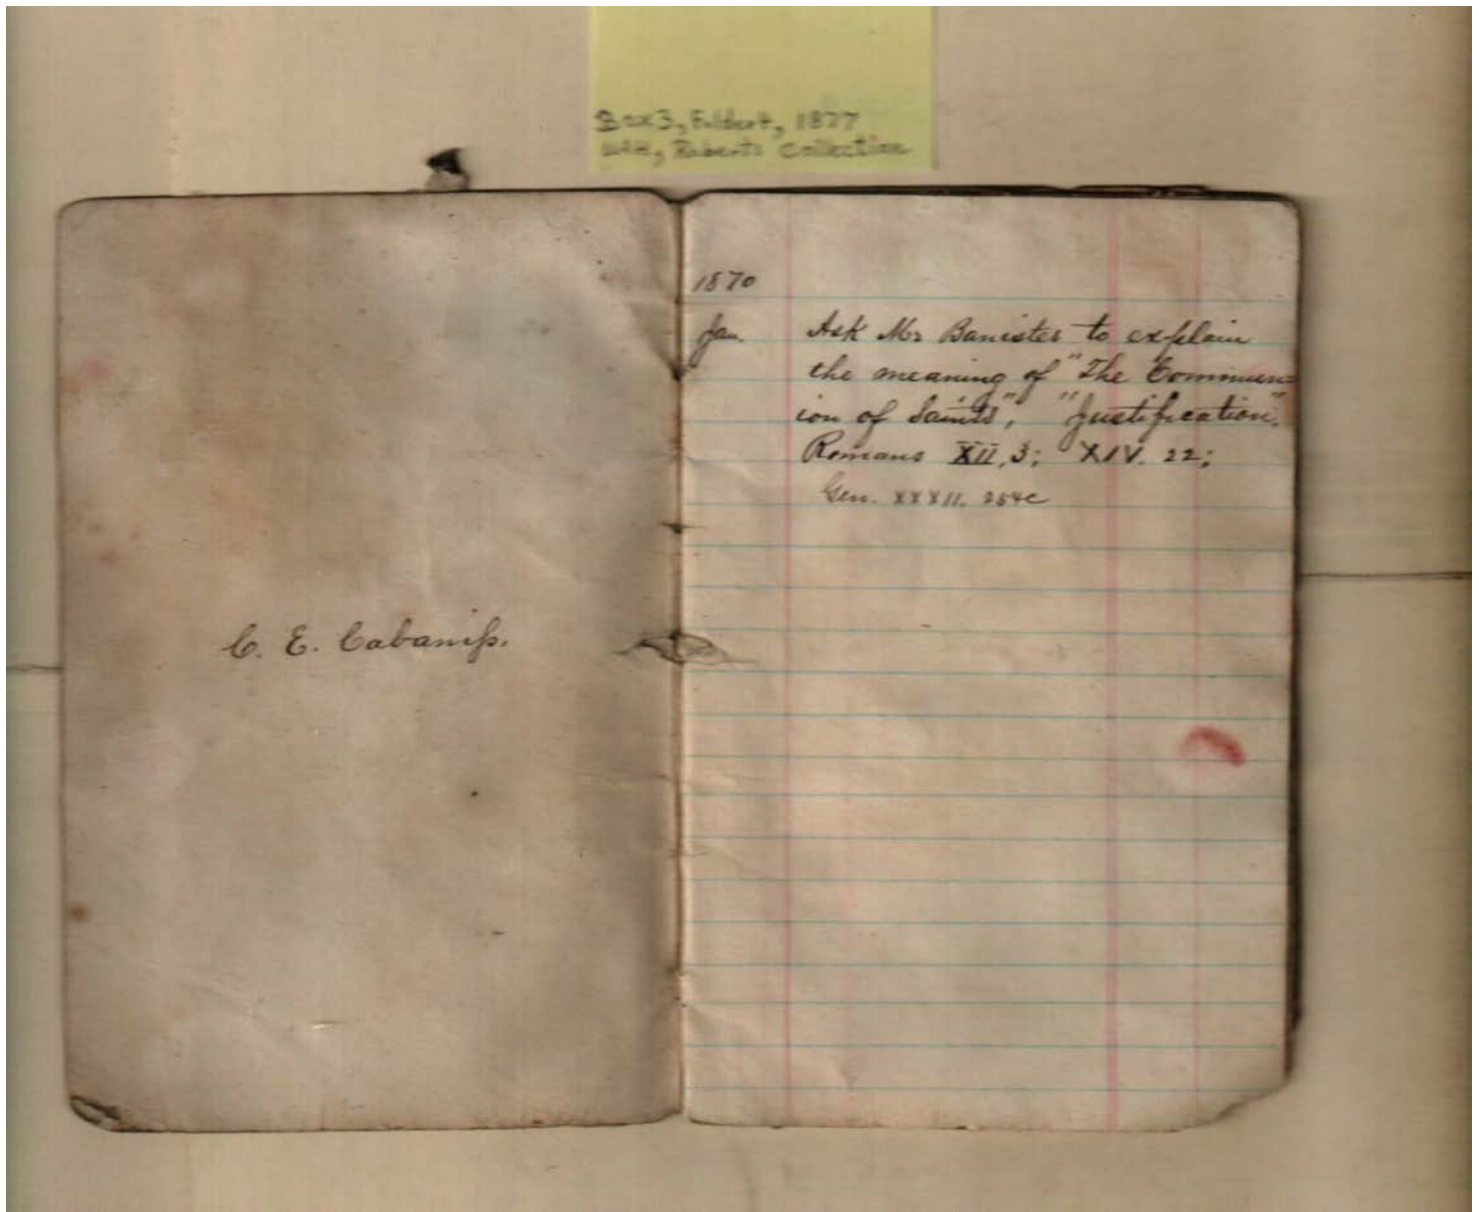 Box 3, Folder 4, 1877
Roberts Collection
C. E. Cabaniſs.
1870
Jan. Ask Mr Banister to explain
the meaning of "The Commun-
ion of Saints", "Justification".
Romans XII, 3; XIV. 22;
Gen. XXXII. 25&c